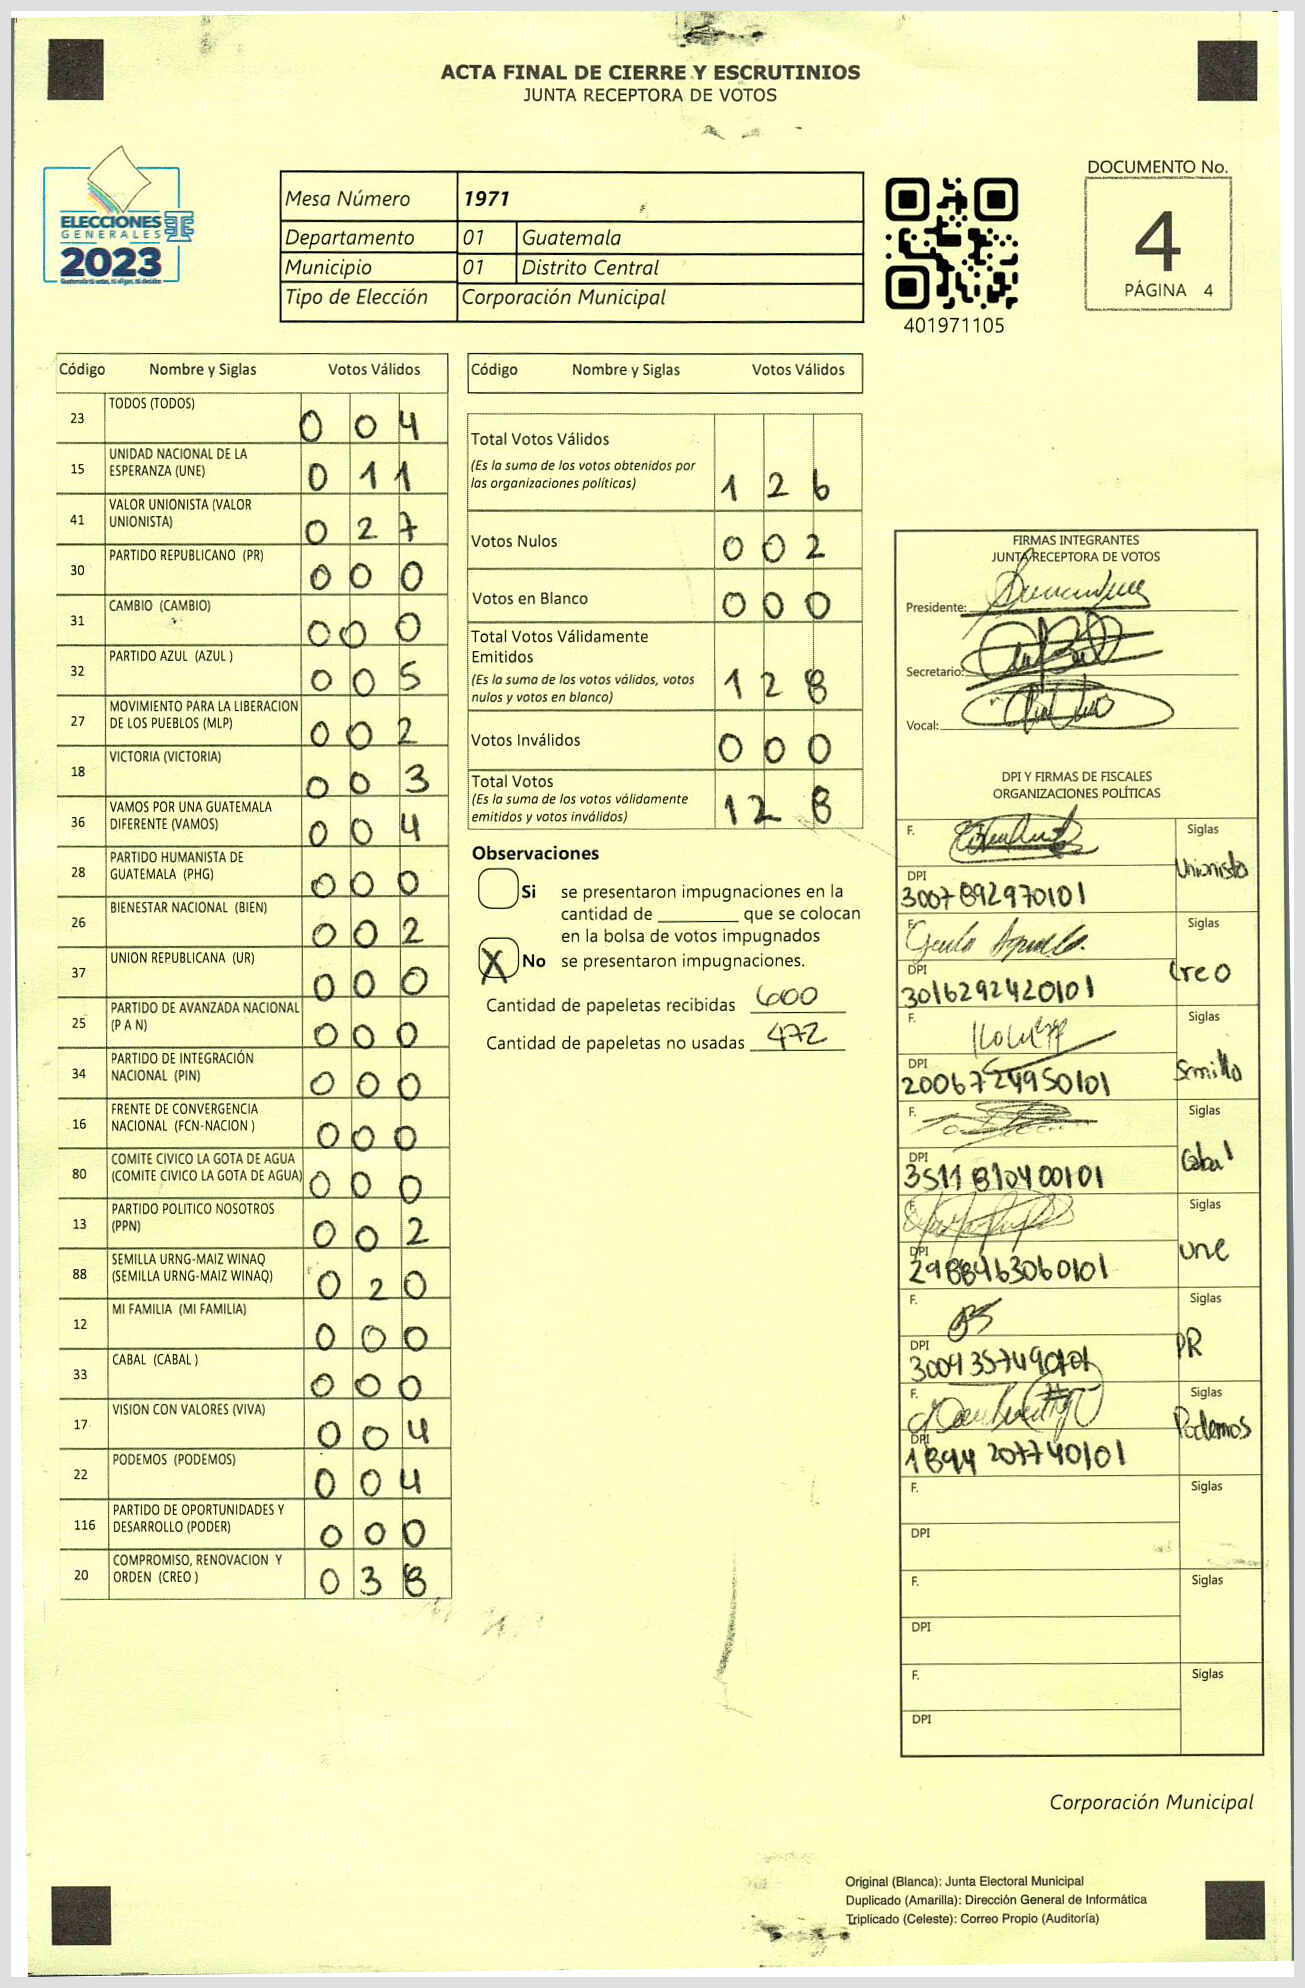 ACTA FINAL DE CIERRE Y ESCRUTINIOS
JUNTA RECEPTORA DE VOTOS
ELECCIONES
GENERALES
2023
Mesa Número 1971
Departamento 01 Guatemala
Municipio 01 Distrito Central
Tipo de Elección Corporación Municipal
401971105
DOCUMENTO No.
4
PÁGINA 4
Código Nombre y Siglas Votos Válidos
23 TODOS (TODOS) 0 0 4
15 UNIDAD NACIONAL DE LA ESPERANZA (UNE) 0 1 1
41 VALOR UNIONISTA (VALOR UNIONISTA) 0 2 7
30 PARTIDO REPUBLICANO (PR) 0 0 0
31 CAMBIO (CAMBIO) 0 0 0
32 PARTIDO AZUL (AZUL ) 0 0 5
27 MOVIMIENTO PARA LA LIBERACION DE LOS PUEBLOS (MLP) 0 0 2
18 VICTORIA (VICTORIA) 0 0 3
36 VAMOS POR UNA GUATEMALA DIFERENTE (VAMOS) 0 0 4
28 PARTIDO HUMANISTA DE GUATEMALA (PHG) 0 0 0
26 BIENESTAR NACIONAL (BIEN) 0 0 2
37 UNION REPUBLICANA (UR) 0 0 0
25 PARTIDO DE AVANZADA NACIONAL (P A N) 0 0 0
34 PARTIDO DE INTEGRACIÓN NACIONAL (PIN) 0 0 0
16 FRENTE DE CONVERGENCIA NACIONAL (FCN-NACION ) 0 0 0
80 COMITE CIVICO LA GOTA DE AGUA (COMITE CIVICO LA GOTA DE AGUA) 0 0 0
13 PARTIDO POLITICO NOSOTROS (PPN) 0 0 2
88 SEMILLA URNG-MAIZ WINAQ (SEMILLA URNG-MAIZ WINAQ) 0 2 0
12 MI FAMILIA (MI FAMILIA) 0 0 0
33 CABAL (CABAL ) 0 0 0
17 VISION CON VALORES (VIVA) 0 0 4
22 PODEMOS (PODEMOS) 0 0 4
116 PARTIDO DE OPORTUNIDADES Y DESARROLLO (PODER) 0 0 0
20 COMPROMISO, RENOVACION Y ORDEN (CREO ) 0 3 8
Código Nombre y Siglas Votos Válidos
Total Votos Válidos
(Es la suma de los votos obtenidos por
las organizaciones políticas) 1 2 6
Votos Nulos 0 0 2
Votos en Blanco 0 0 0
Total Votos Válidamente
Emitidos
(Es la suma de los votos válidos, votos
nulos y votos en blanco) 1 2 8
Votos Inválidos 0 0 0
Total Votos
(Es la suma de los votos válidamente
emitidos y votos inválidos) 1 2 8
Observaciones
Si se presentaron impugnaciones en la
cantidad de ________ que se colocan
en la bolsa de votos impugnados
X No se presentaron impugnaciones.
Cantidad de papeletas recibidas 600
Cantidad de papeletas no usadas 472
FIRMAS INTEGRANTES
JUNTA RECEPTORA DE VOTOS
Presidente:
Secretario:
Vocal:
DPI Y FIRMAS DE FISCALES
ORGANIZACIONES POLÍTICAS
F. Siglas
Unionista
DPI
3007892970101
F. Siglas
Creo
DPI
3016292420101
F. Siglas
Semilla
DPI
2006724950101
F. Siglas
Cabal
DPI
3511810400101
F. Siglas
une
DPI
2988463060101
F. Siglas
PR
DPI
F. Siglas
Podemos
DPI
1894207740101
F. Siglas
DPI
F. Siglas
DPI
F. Siglas
DPI
Corporación Municipal
Original (Blanca): Junta Electoral Municipal
Duplicado (Amarilla): Dirección General de Informática
Triplicado (Celeste): Correo Propio (Auditoría)